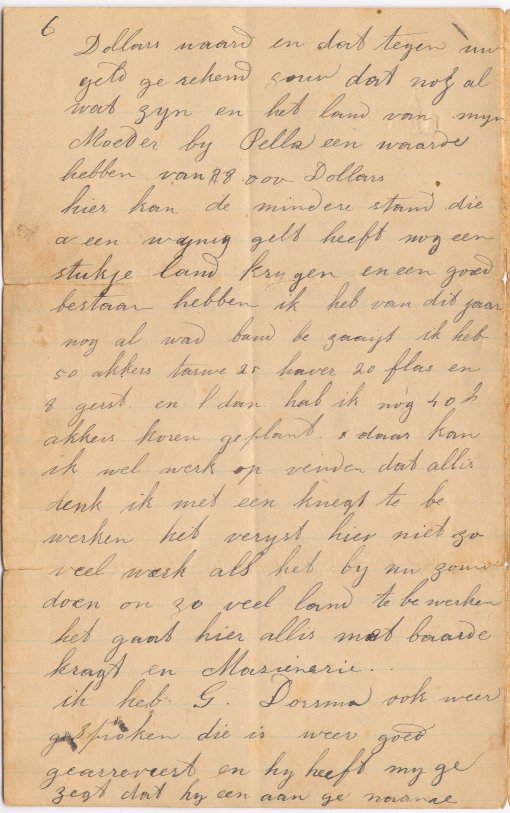 6
Dollars waard en dat tegen uw
geld ge rekend zouw dat nog al
wat zyn en het land van myn
Moeder by Pella een waarde
hebben van 8 000 Dollars
hier kan de mindere stand die
een waynig gelt heeft nog een
stukje land krygen en een goed
bestaan hebben ik heb van dit jaar
nog al wad land be zaayt ik heb
50 akkers tarwe 25 haver 20 flas en
8 gerst en dan hab ik nog 40
akkers koren geplant daar kan
ik wel werk op vinden dat alles
denk ik met een knegt te be
werken het veryst hier niet zo
veel werk als het by nu zouw
doen on zo veel land te bewerken
het gaat hier alles met paarde
kragt en Masienerie..
ik heb G. Dorsma ook weer
gesproken die is weer goed
gearreveert en hy heeft my ge
zegt dat hy een aan ge naame